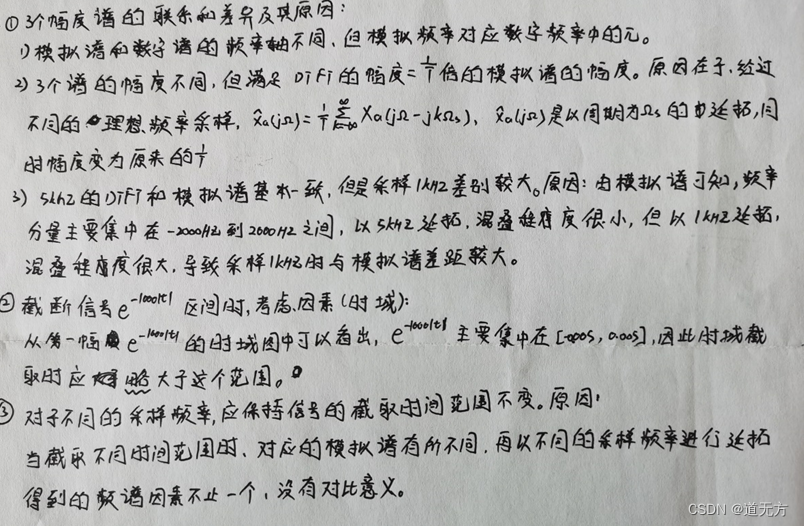 ① 3个幅度谱的联系和差异及其原因：
1) 模拟谱和数字谱的频率轴不同，但模拟频率对应数字频率中的π。
2) 3个谱的幅度不同，但满足DTFT的幅度=1/T倍的模拟谱的幅度。原因在于，经过
不同的理想频率采样，x̂a(jΩ)=1/T ∑(k=-∞ ∞) Xa(jΩ-jkΩs)，x̂a(jΩ)是以周期为Ωs的延拓，同
时幅度变为原来的1/T
3) 5kHz的DTFT和模拟谱基本一致，但是采样1kHz差别较大。原因：由模拟谱可知，频率
分量主要集中在-2000Hz到2000Hz之间，以5kHz延拓，混叠程度很小，但以1kHz延拓，
混叠程度很大，导致采样1kHz时与模拟谱差距较大。
② 截断信号e^-1000|t| 区间时，考虑因素(时域)：
从第一幅e^-1000|t|的时域图中可以看出，e^-1000|t|主要集中在[-0.005, 0.005]，因此时域截
取时应略大于这个范围。
③ 对于不同的采样频率，应保持信号的截取时间范围不变。原因：
当截取不同时间范围时、对应的模拟谱有所不同，再以不同的采样频率进行延拓
得到的频谱因素不止一个，没有对比意义。
CSDN @道无方